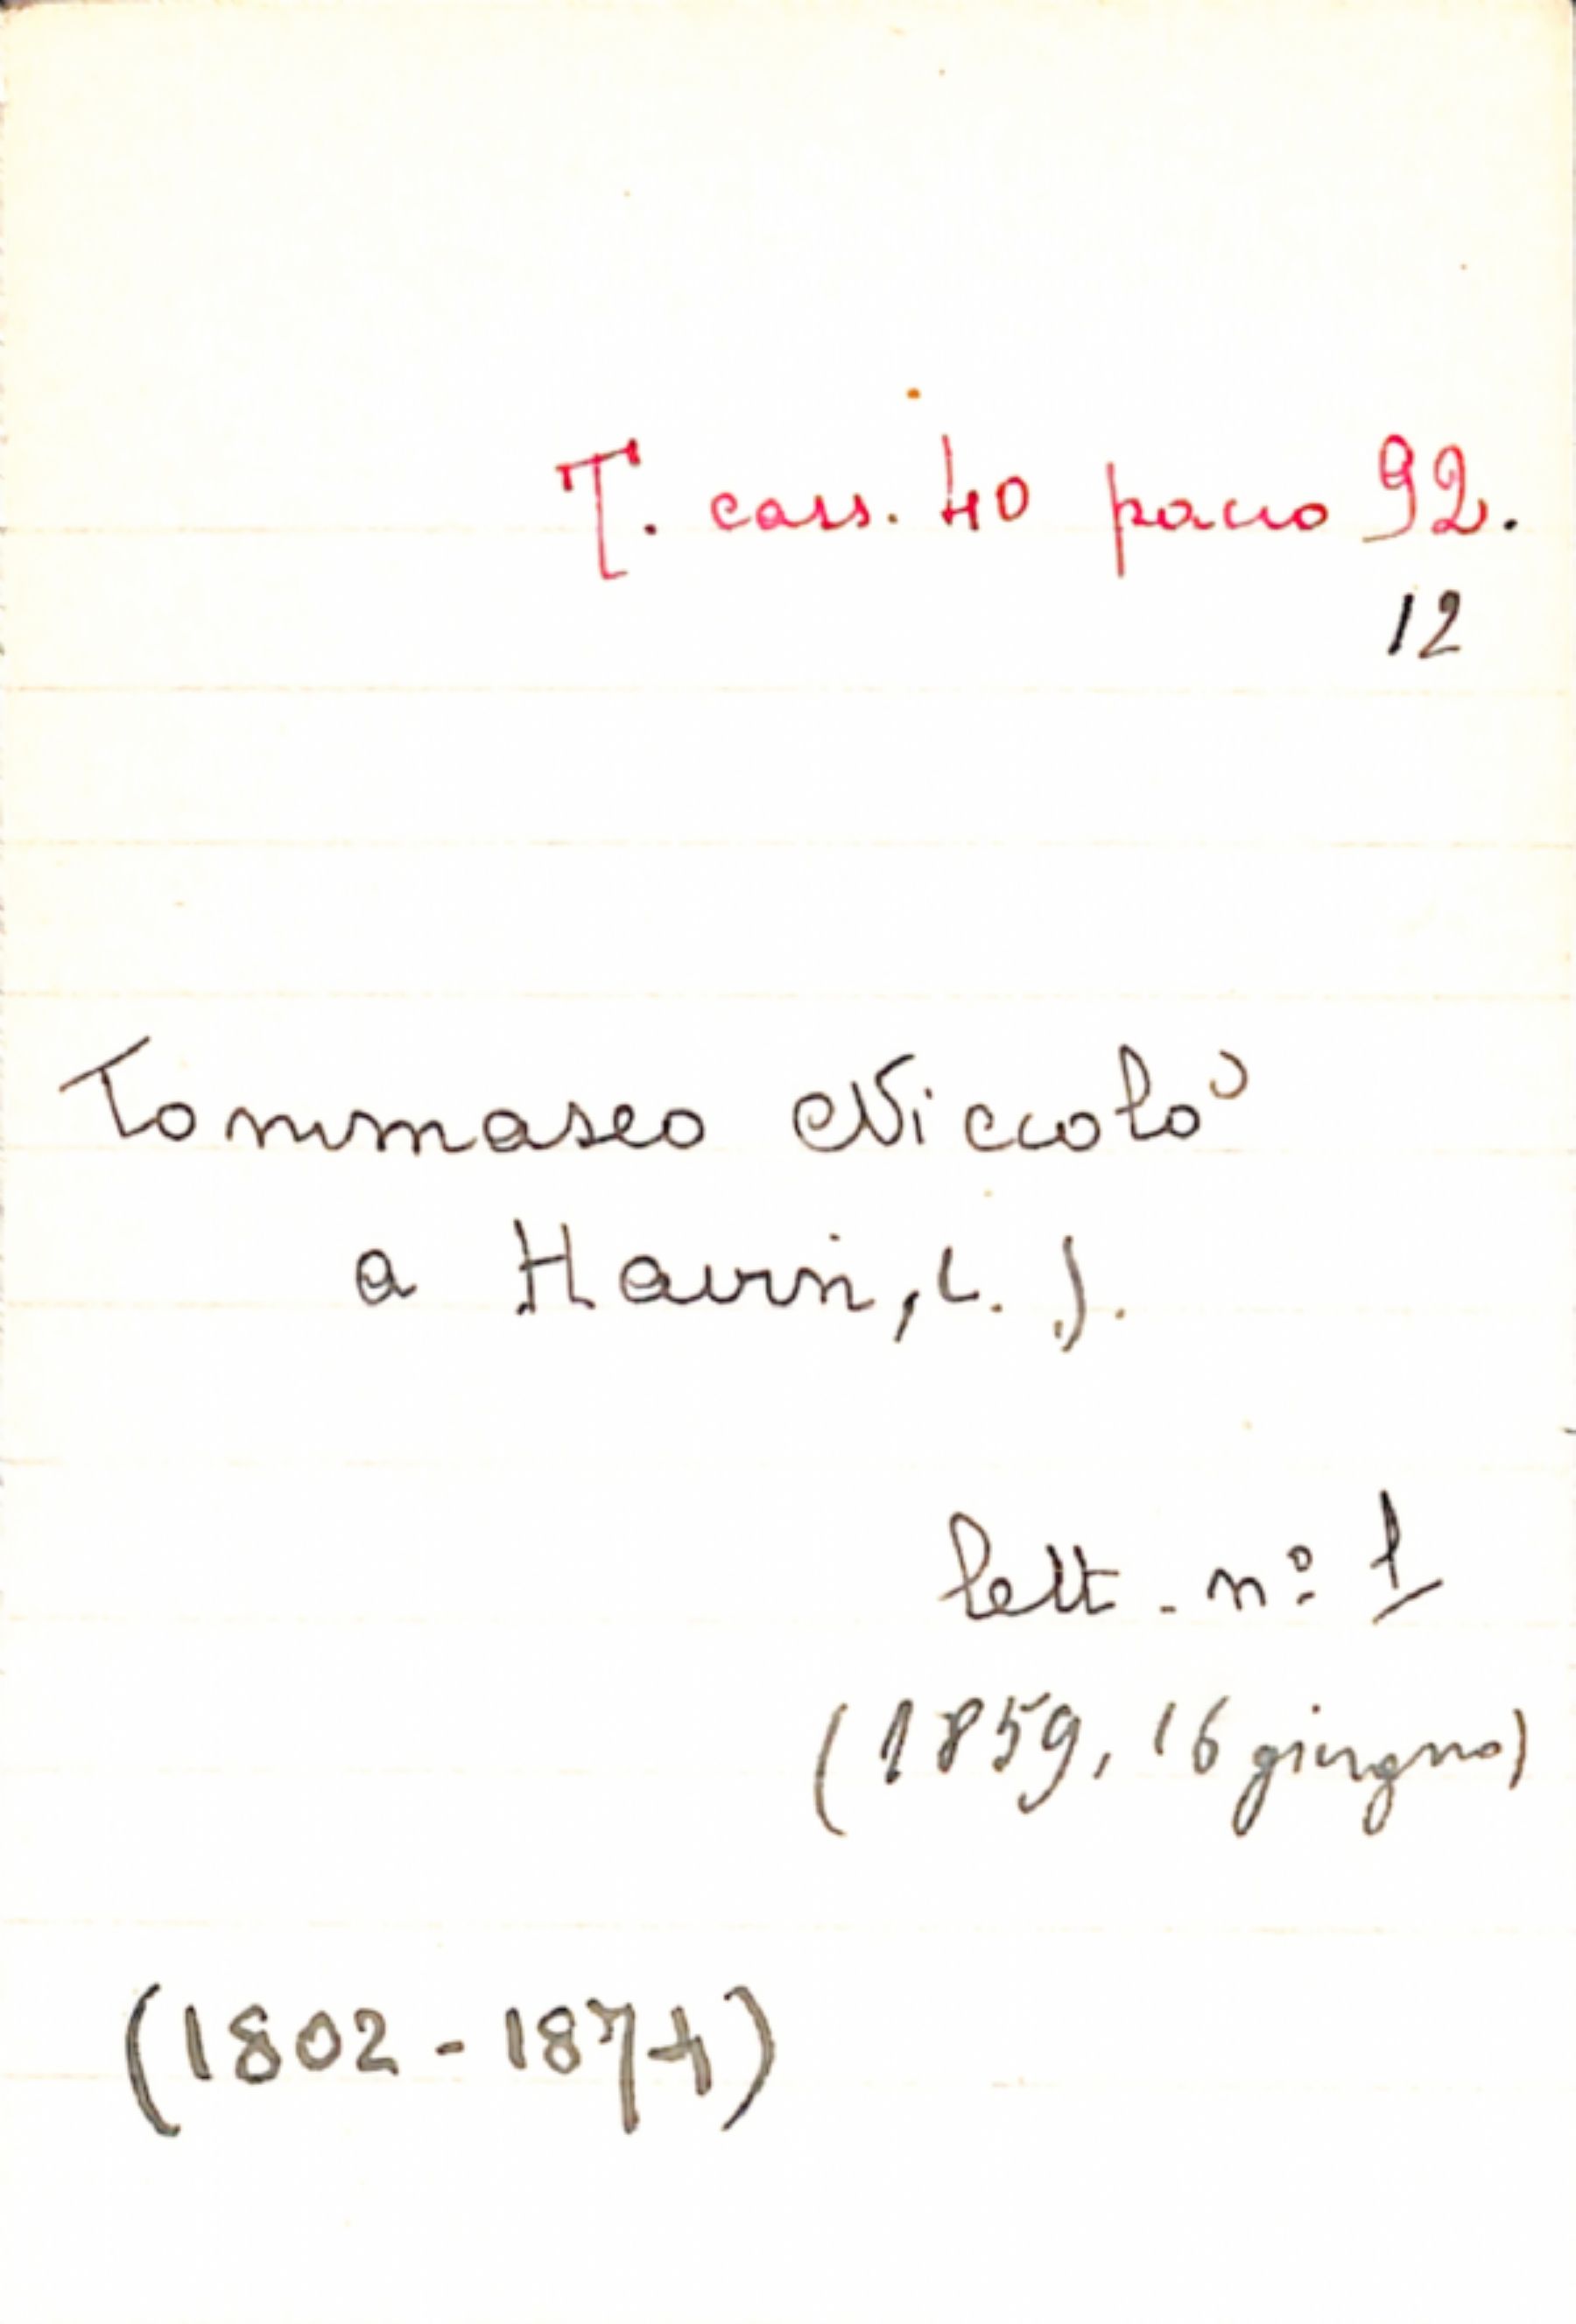 T. cass. 40 pacco 92.
12
Tommaseo Niccolò
a Havin, L. J.
lett. nº 1
(1859, 16 giugno)
(1802-1874)